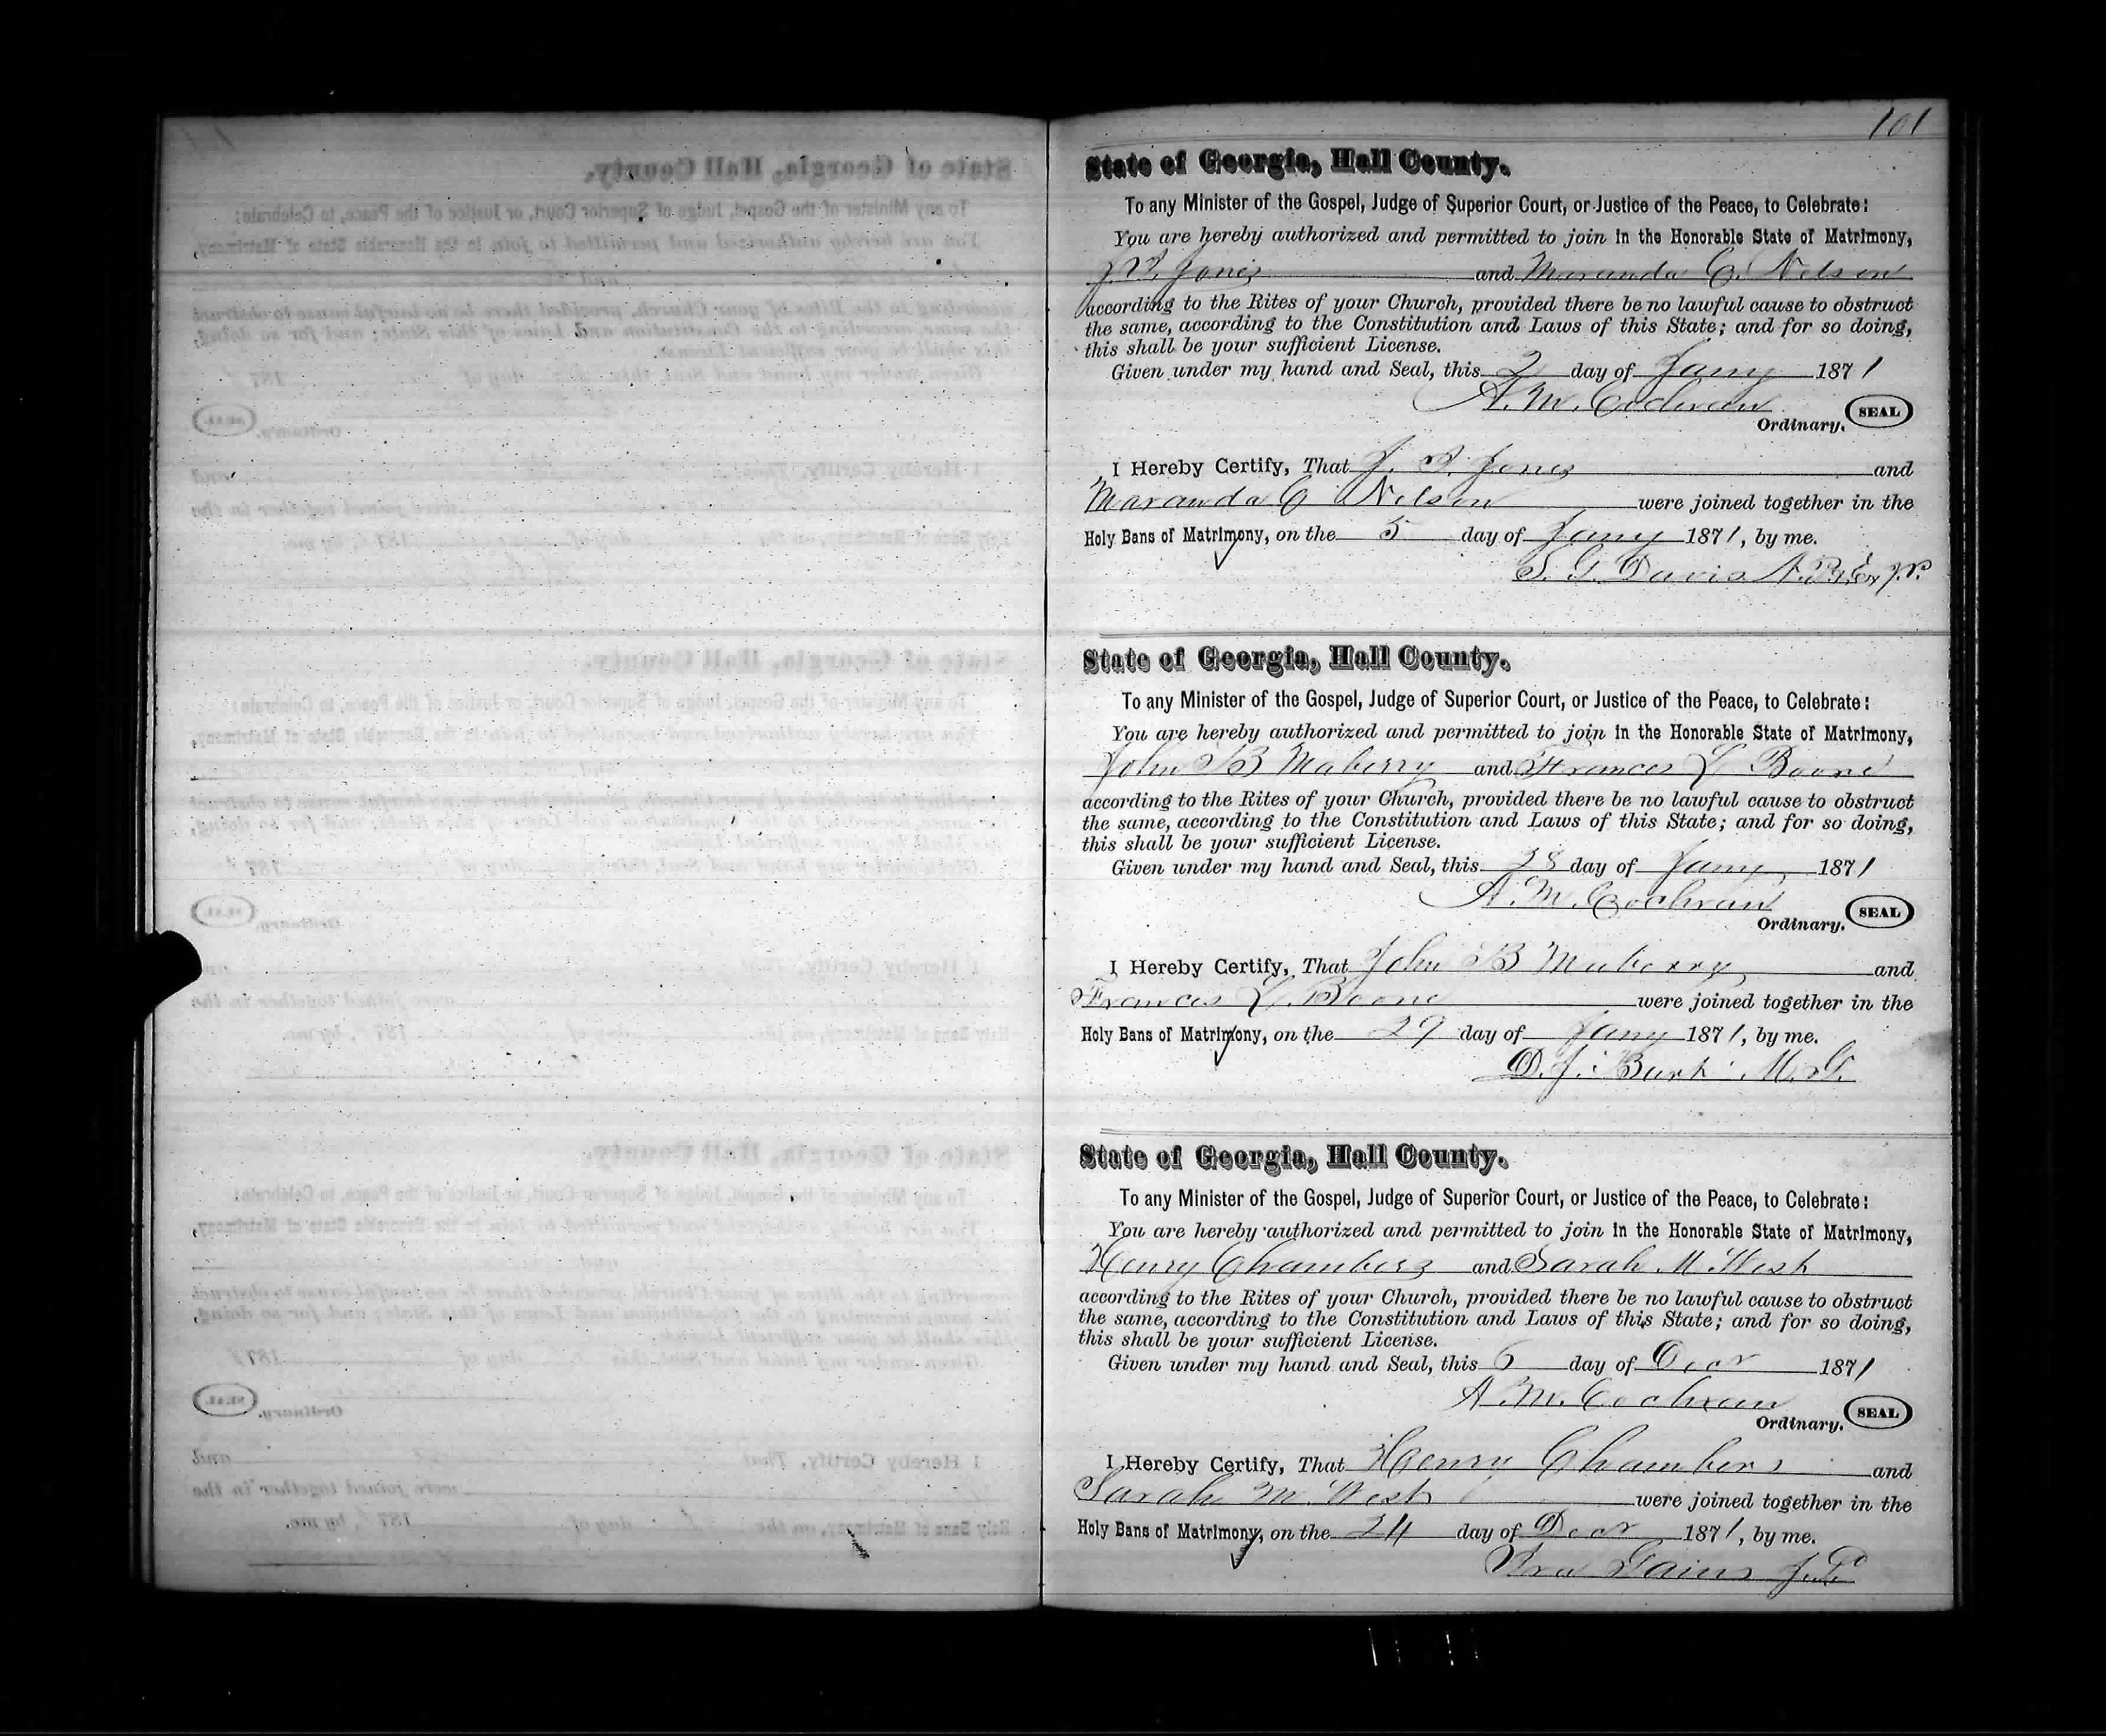 101
State of Georgia, Hall County.
To any Minister of the Gospel, Judge of Superior Court, or Justice of the Peace, to Celebrate:
You are hereby authorized and permitted to join in the Honorable State of Matrimony,
Jones and Maranda C. Nelson
according to the Rites of your Church, provided there be no lawful cause to obstruct
the same, according to the Constitution and Laws of this State; and for so doing,
this shall be your sufficient License.
Given under my hand and Seal, this 2 day of Jany 1871
A. M. Cochran
Ordinary. SEAL
I Hereby Certify, That J. Jones and
Maranda C Nelson were joined together in the
Holy Bans of Matrimony, on the 5 day of Jany 1871, by me.
S. G. Davis N.P. & Ex J.P.
State of Georgia, Hall County.
To any Minister of the Gospel, Judge of Superior Court, or Justice of the Peace, to Celebrate:
You are hereby authorized and permitted to join in the Honorable State of Matrimony,
John B Maberry and Frances L Boone
according to the Rites of your Church, provided there be no lawful cause to obstruct
the same, according to the Constitution and Laws of this State; and for so doing,
this shall be your sufficient License.
Given under my hand and Seal, this 28 day of Jany 1871
A. M. Cochran
Ordinary. SEAL
I Hereby Certify, That John B Maberry and
Frances L. Boone were joined together in the
Holy Bans of Matrimony, on the 29 day of Jany 1871, by me.
D. J. Burt M. G.
State of Georgia, Hall County.
To any Minister of the Gospel, Judge of Superior Court, or Justice of the Peace, to Celebrate:
You are hereby authorized and permitted to join in the Honorable State of Matrimony,
Henry Chambers and Sarah M. West
according to the Rites of your Church, provided there be no lawful cause to obstruct
the same, according to the Constitution and Laws of this State; and for so doing,
this shall be your sufficient License.
Given under my hand and Seal, this 6 day of Decr 1871
A. M. Cochran
Ordinary. SEAL
I Hereby Certify, That Henry Chambers and
Sarah M. West were joined together in the
Holy Bans of Matrimony, on the 24 day of Decr 1871, by me.
Ira Gaines J.P.